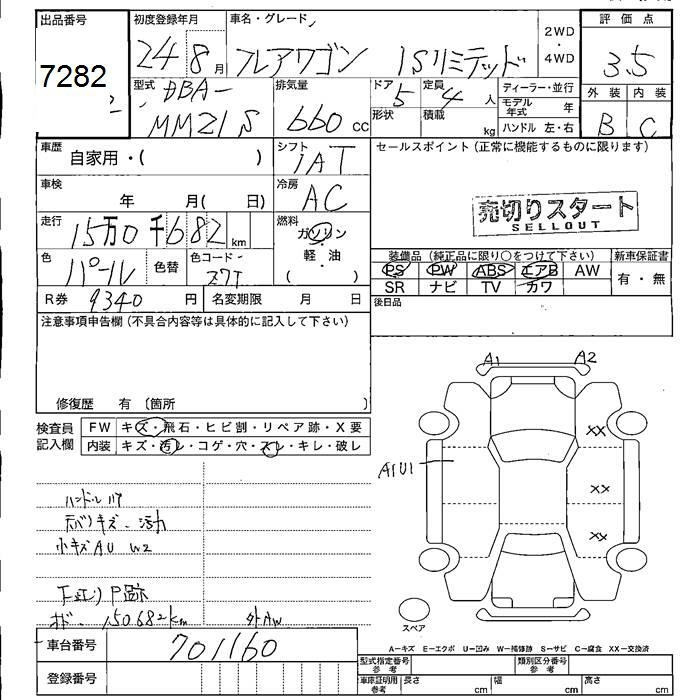 出品番号 初度登録年月 車名・グレード 評価点
7282 24 8月 フレアワゴン ISリミテッド 2WD・4WD 3.5
型式 DBA- 排気量 ドア 5 定員 4人 ディーラー・並行 外装 内装
MM21S 660cc 形状 積載 kg モデル年式 年 B C
ハンドル 左・右
車歴 自家用・( ) シフト iAT セールスポイント(正常に機能するものに限ります)
車検 年 月( 日) 冷房 AC
売切りスタート
SELLOUT
走行 15万0千682km 燃料 ガソリン・軽油( )
色 パール 色替 色コード Z7T
装備品(純正品に限り○をつけて下さい) 新車保証書
PS PW ABS エアB AW 有・無
SR ナビ TV カワ
R券 9340円 名変期限 月 日 後日品
注意事項申告欄(不具合内容等は具体的に記入して下さい)
修復歴 有〔箇所 〕
検査員記入欄 FW キズ・飛石・ヒビ割・リペア跡・X要
内装 キズ・汚レ・コゲ・穴・スレ・キレ・破レ
A1 A2
XX
A1U1
XX
XX
ハンドル
内バリキズ・汚れ
小キズ AU W2
P跡
150.682km 外AW
スペア
A-キズ E-エクボ U-凹み W-補修跡 S-サビ C-腐食 XX-交換済
車台番号 701160
型式指定番号 参考 類別区分番号 参考
登録番号
車庫証明用 参考 長さ cm 幅 cm 高さ cm